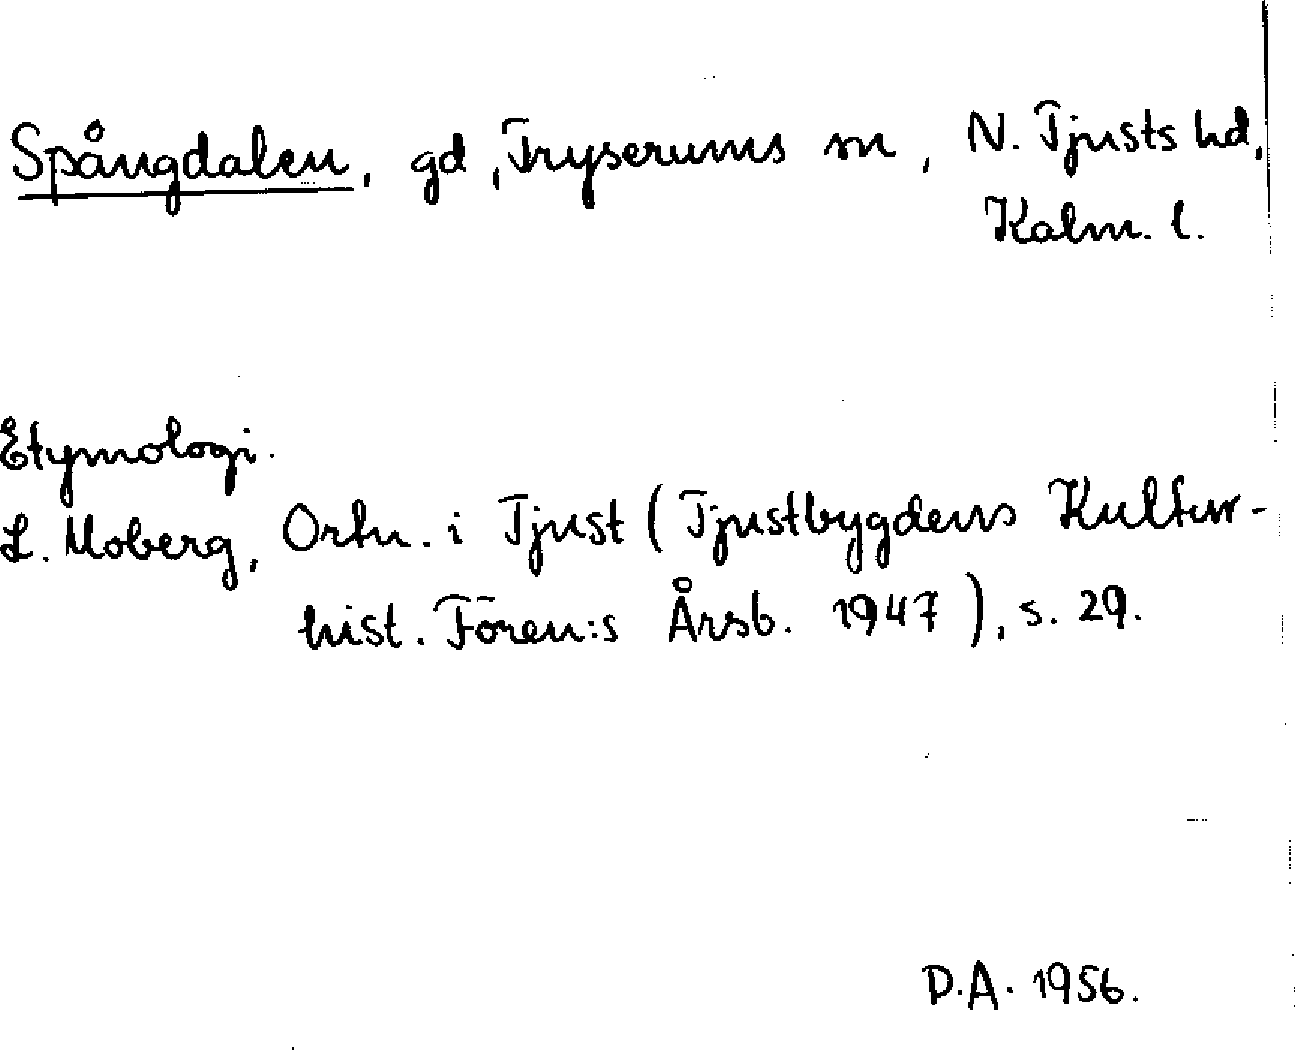 Spångdalen, gd, Tryserums sn, N. Tjusts hd,
Kalm. l.
Etymologi.
L. Moberg, Ortn. i Tjust (Tjustbygdens Kultur-
hist. Fören:s Årsb. 1947), s. 29.
D.A. 1956.